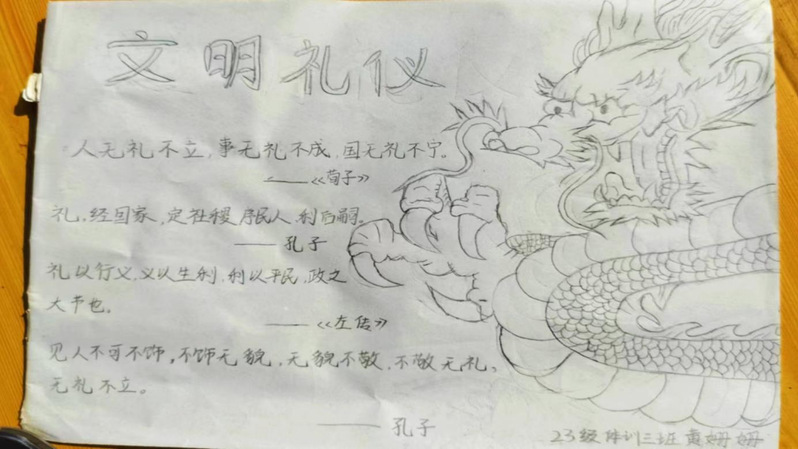 文明礼仪
人无礼不立,事无礼不成,国无礼不宁。
——《荀子》
礼,经国家,定社稷,序民人,利后嗣。
——孔子
礼以行义,义以生利,利以平民,政之
大节也。
——《左传》
见人不可不饰,不饰无貌,无貌不敬,不敬无礼,
无礼不立。
——孔子
23级体训三班 黄姗姗